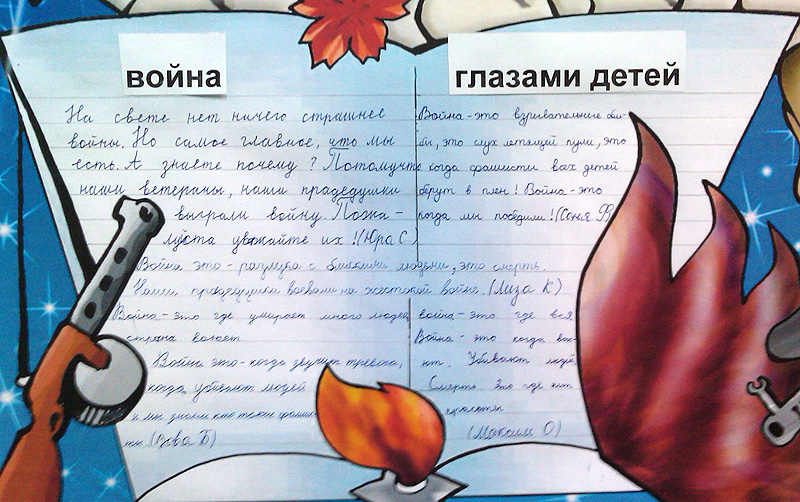 война
глазами детей
На свете нет ничего страшнее
войны. Но самое главное, что мы
есть. А знаете почему? Потомучто
наши ветераны, наши прадедушки
выграли войну. Пожа-
луйста уважайте их!(Юра С.)
Война-это взрывательные бом-
бы, это слух летящей пули, это
когда фашисты всех детей
берут в плен! Война-это
когда мы победили!(Соня Ф)
Война это-разлука с близкими людьми, это смерть.
Наши прадедушки воевали на жестокой войне. (Лиза К)
Война-это где умирает много людей
страна воюет
Война это-когда звучит тревога,
когда убивают людей
и мы знаем кто такие фашис
ты (Вова Б)
война-это где вся
Война-это когда вою-
ют. Убивают людей
Смерть. Это где нет
красоты
(Максим О)